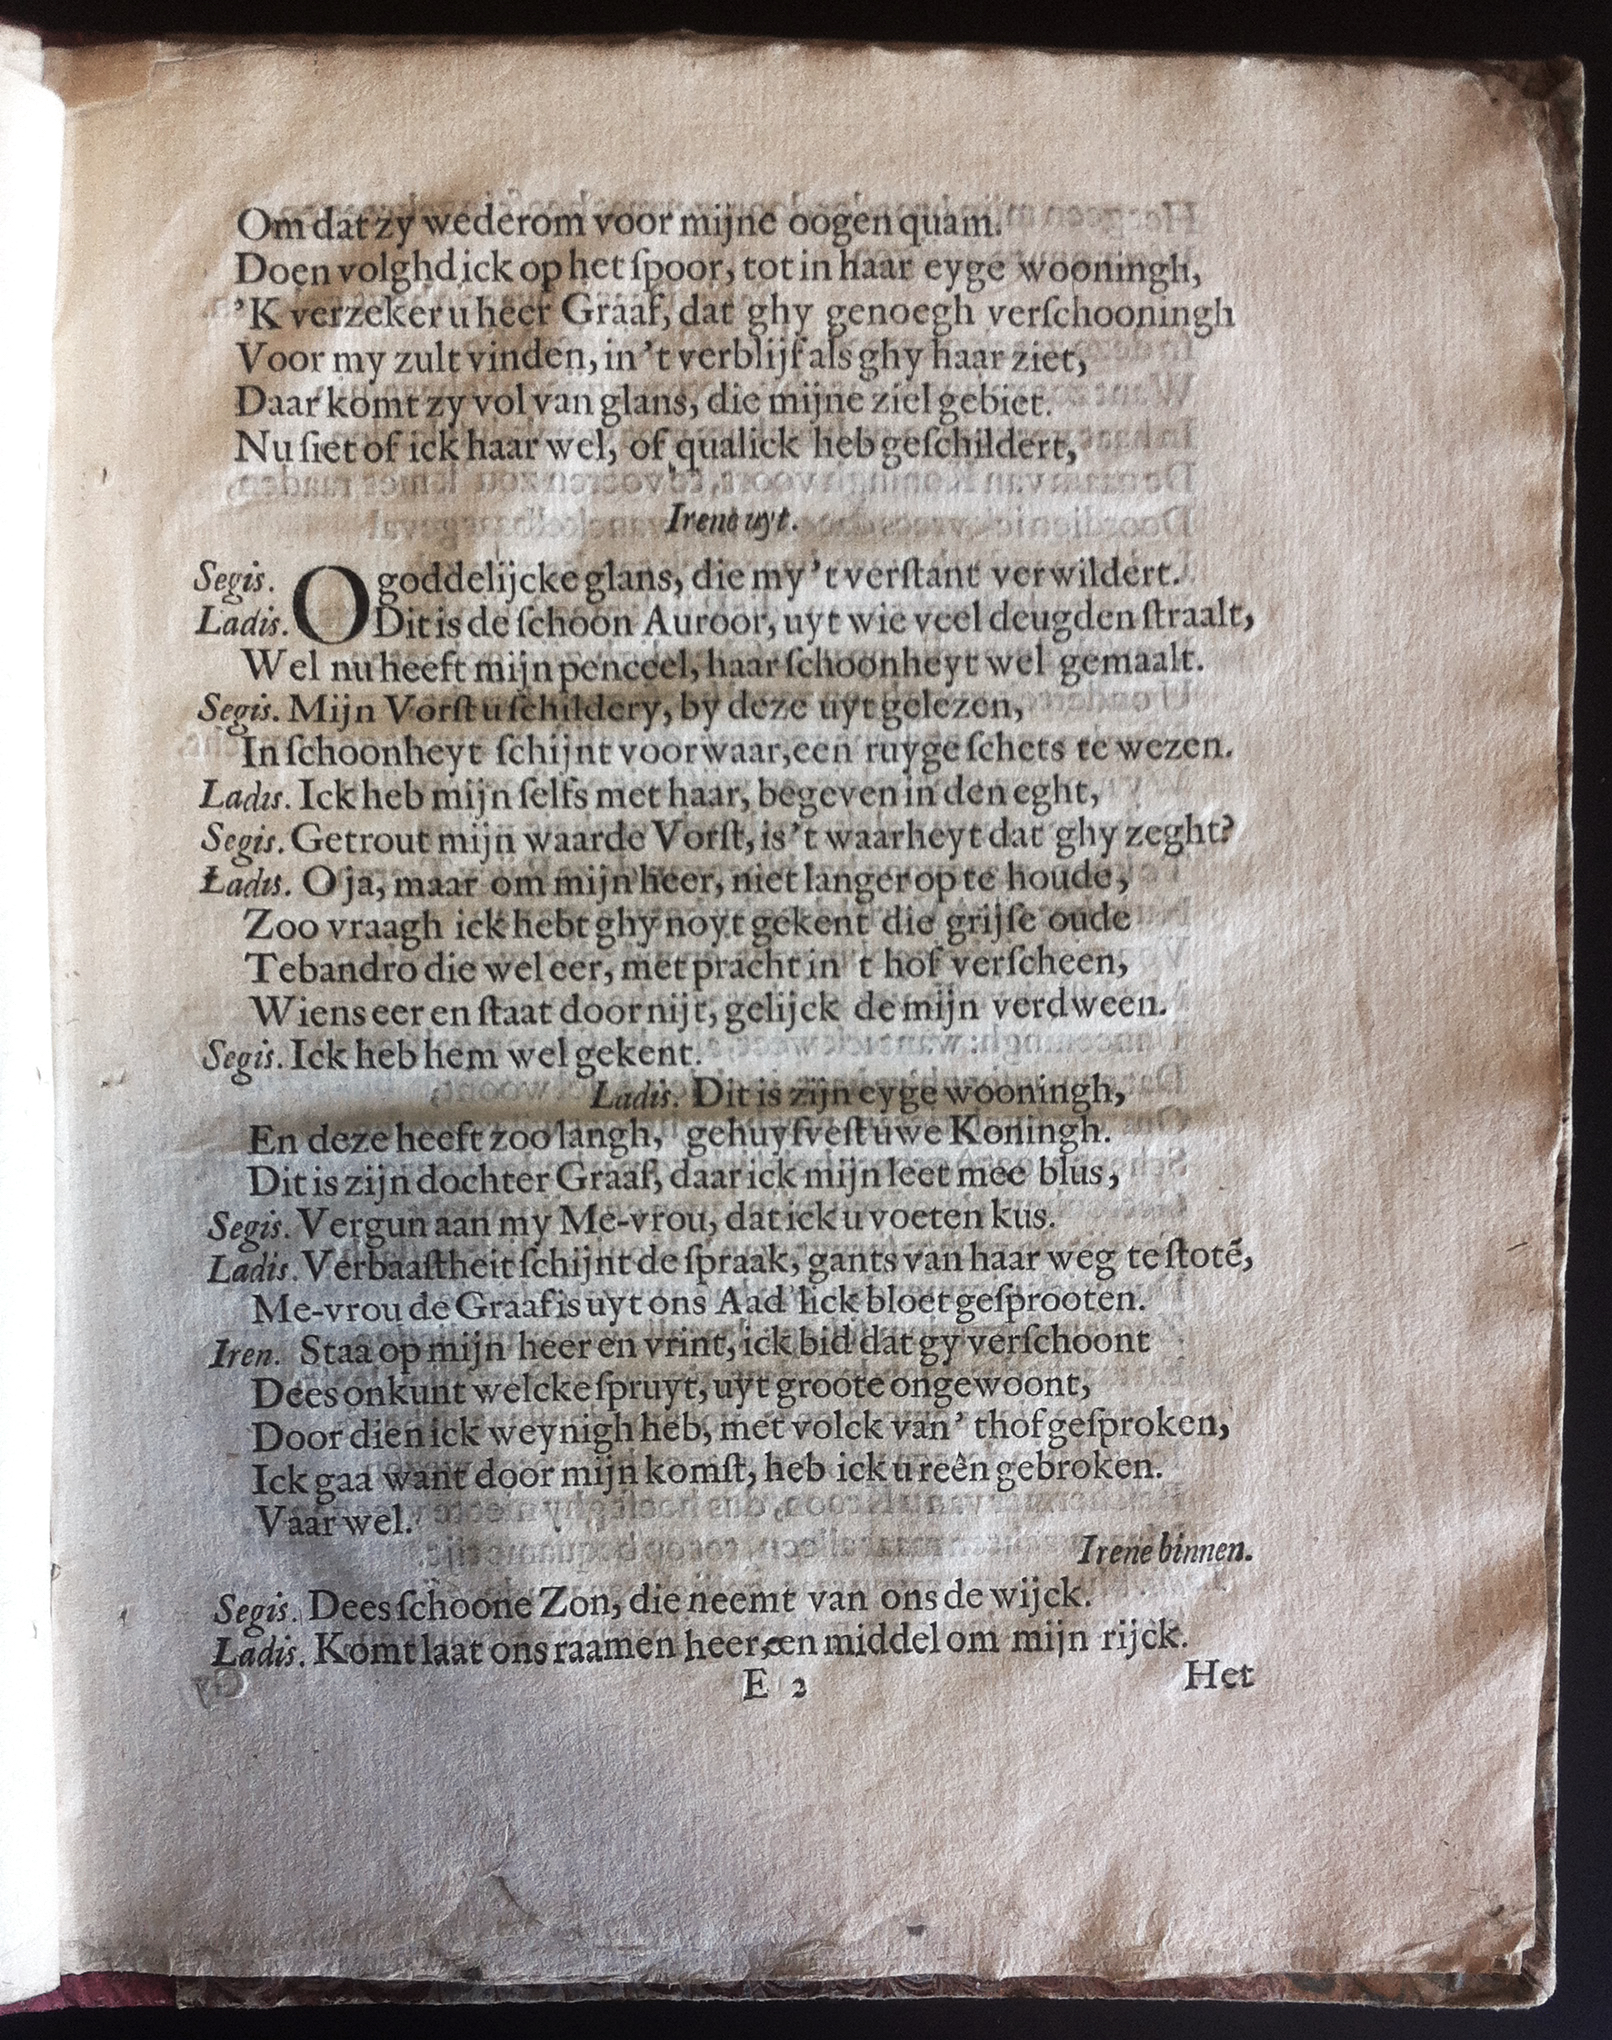 Om dat zy wederom voor mijne oogen quam.
Doen volghd ick op het ſpoor, tot in haar eyge wooningh,
'K verzeker u heer Graaf, dat ghy genoegh verſchooningh
Voor my zult vinden, in 't verblijf als ghy haar ziet,
Daar komt zy vol van glans, die mijne ziel gebiet.
Nu ſiet of ick haar wel, of qualick heb geſchildert,
Irene uyt.
Segis. O goddelijcke glans, die my 't verſtant verwildert.
Ladis. Dit is de ſchoon Auroor, uyt wie veel deugden ſtraalt,
Wel nu heeft mijn penceel, haar ſchoonheyt wel gemaalt.
Segis. Mijn Vorſt u ſchildery, by deze uyt gelezen,
In ſchoonheyt ſchijnt voorwaar, een ruyge ſchets te wezen.
Ladis. Ick heb mijn ſelfs met haar, begeven in den eght,
Segis. Getrout mijn waarde Vorſt, is 't waarheyt dat ghy zeght?
Ladis. O ja, maar om mijn heer, niet langer op te houde,
Zoo vraagh ick hebt ghy noyt gekent die grijſe oude
Tebandro die wel eer, met pracht in 't hof verſcheen,
Wiens eer en ſtaat door nijt, gelijck de mijn verdween.
Segis. Ick heb hem wel gekent.
Ladis. Dit is zijn eyge wooningh,
En deze heeft zoo langh, gehuyſveſt uwe Koningh.
Dit is zijn dochter Graaf, daar ick mijn leet mee blus,
Segis. Vergun aan my Me-vrou, dat ick u voeten kus.
Ladis. Verbaaſtheit ſchijnt de ſpraak, gants van haar weg te ſtotē,
Me-vrou de Graaf is uyt ons Aad'lick bloet geſprooten.
Iren. Staa op mijn heer en vrint, ick bid dat gy verſchoont
Dees onkunt welcke ſpruyt, uyt groote ongewoont,
Door dien ick weynigh heb, met volck van' thof geſproken,
Ick gaa want door mijn komſt, heb ick u reên gebroken.
Vaar wel.
Irene binnen.
Segis. Dees ſchoone Zon, die neemt van ons de wijck.
Ladis. Komt laat ons raamen heer, een middel om mijn rijck.
E 2
Het